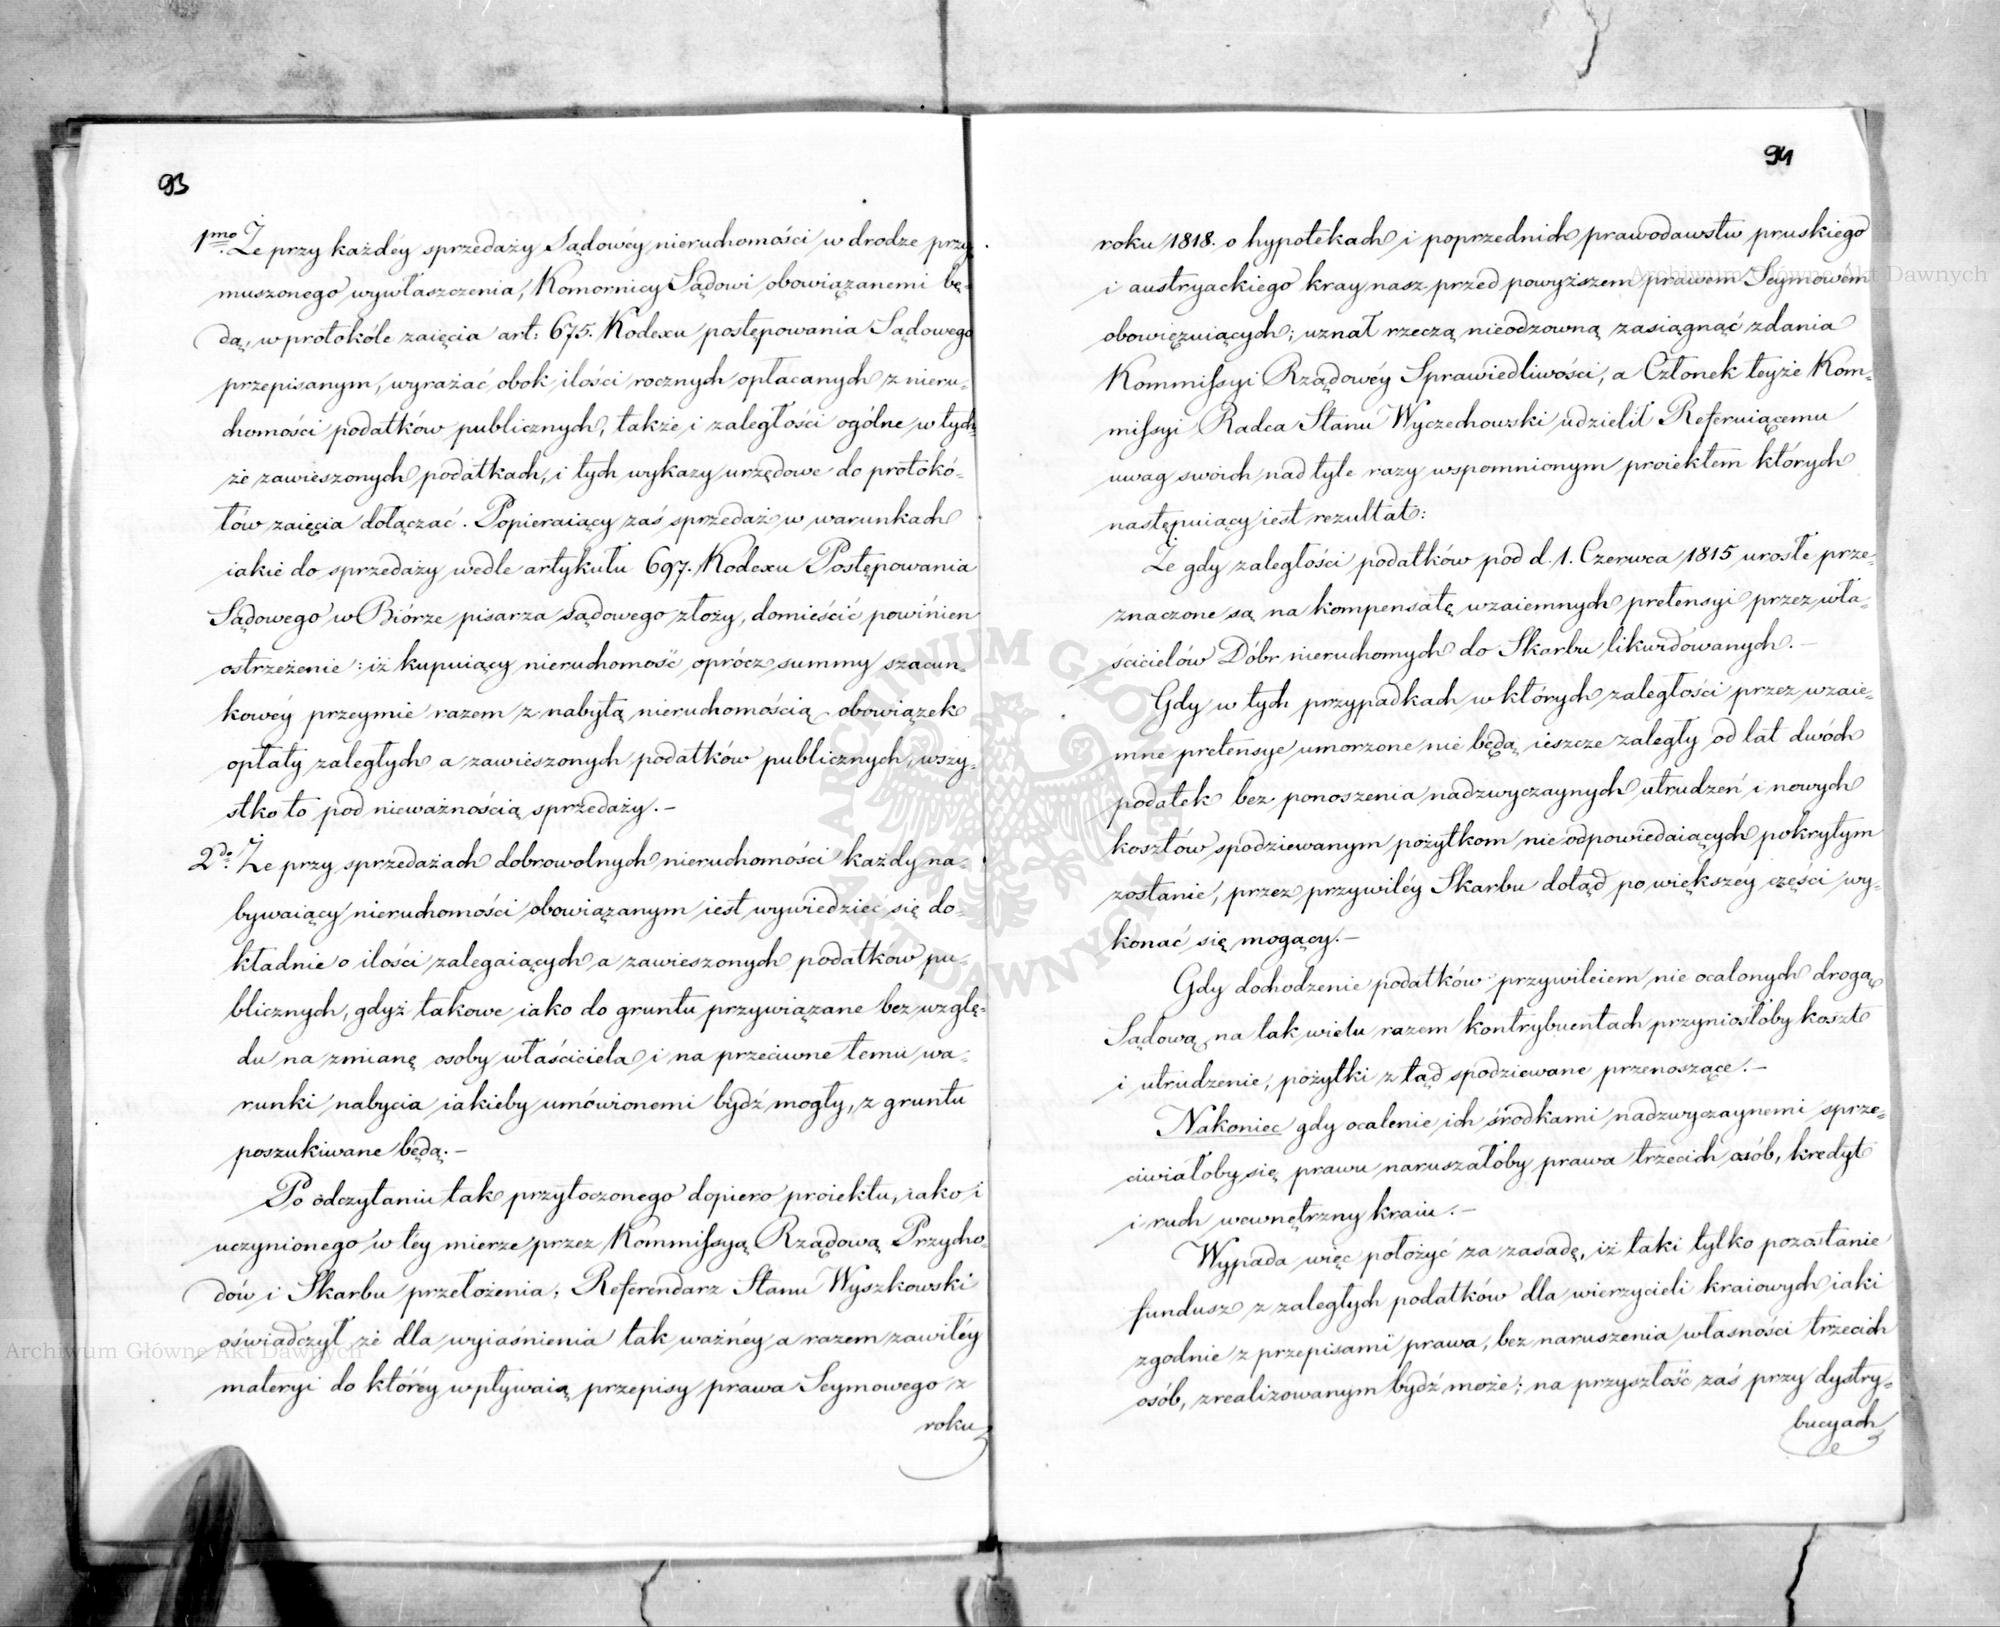 93
1mo Że przy każdéy sprzedaży Sądowéy nieruchomości w drodze przy
muszonego wywłaszczenia, Komornicy Sądowi obowiązanemi bę-
dą, w protokóle zaięcia art: 675. Kodexu postępowania Sądowego
przepisanym, wyrażać obok ilości rocznych opłacanych z nieru-
chomości podatków publicznych, także i zaległości ogólne w tych-
że zawieszonych podatkach, i tych wykazy urzędowe do protokó-
łów zaięcia dołączać. Popieraiący zaś sprzedaż w warunkach
iakie do sprzedaży wedle artykułu 697. Kodexu Postępowania
Sądowego w Biórze pisarza sądowego złoży, domieścić powinien
ostrzeżenie: iż kupuiący nieruchomość oprócz summy szacun-
kowéy przeymie razem z nabytą nieruchomością obowiązek
opłaty zaległych a zawieszonych podatków publicznych, wszy-
stko to pod nieważnością sprzedaży.–
2do Że przy sprzedażach dobrowolnych nieruchomości każdy na-
bywaiący nieruchomości obowiązanym iest wywiedzieć się do-
kładnie o ilości zalegaiących a zawieszonych podatków pu-
blicznych, gdyż takowe iako do gruntu przywiązane bez wzglę-
du na zmianę osoby właściciela i na przeciwne temu wa-
runki nabycia iakieby umówionemi bydź mogły, z gruntu
poszukiwane będą.–
Po odczytaniu tak przytoczonego dopiero proiektu, iako i
uczynionego w téy mierze przez Kommissyą Rządową Przycho-
dów i Skarbu przełożenia; Referendarz Stanu Wyszkowski
oświadczył że dla wyiaśnienia tak ważnéy a razem zawiłéy
materyi do któréy wpływaią przepisy prawa Seymowego z
roku
94
roku 1818. o hypotekach i poprzednich prawodawstw pruskiego
i austryackiego kray nasz przed powyższem prawem Seymowém
obowięzuiących; uznał rzeczą nieodzowną zasiągnąć zdania
Kommissyi Rządowéy Sprawiedliwości, a Członek teyże Kom-
missyi Radca Stanu Wyczechowski udzielił Referuiącemu
uwag swoich nad tyle razy wspomnionym proiektem których
następuiący iest rezultat:
Że gdy zaległości podatków pod d. 1. Czerwca 1815 urosłe prze-
znaczone są na kompensatę wzaiemnych pretensyi przez wła-
ścicielów Dóbr nieruchomych do Skarbu likwidowanych.–
Gdy w tych przypadkach w których zaległości przez wzaie-
mne pretensye umorzone nie będą ieszcze zaległy od lat dwóch
podatek bez ponoszenia nadzwyczaynych utrudzeń i nowych
kosztów spodziewanym pożytkom nieodpowiedaiących pokrytym
zostanie, przez przywiléy Skarbu dotąd po większéy części wy-
konać się mogący.–
Gdy dochodzenie podatków przywileiem nie ocalonych drogą
Sądową na tak wielu razem kontrybuentach przyniosłoby koszt
i utrudzenie, pożytki z tąd spodziewane przenoszące.–
Nakoniec gdy ocalenie ich środkami nadzwyczaynemi sprze-
ciwiałoby się prawu naruszałoby prawa trzecich osób, kredyt
i ruch wewnętrzny kraiu.–
Wypada więc położyć za zasadę, iż taki tylko pozostanie
fundusz z zaległych podatków dla wierzycieli kraiowych iaki
zgodnie z przepisami prawa, bez naruszenia własności trzecich
osób, zrealizowanym bydź może; na przyszłość zaś przy dystry-
bucyach
Archiwum Główne Akt Dawnych
Archiwum Główne Akt Dawnych
ARCHIWUM GŁÓWNE AKT DAWNYCH